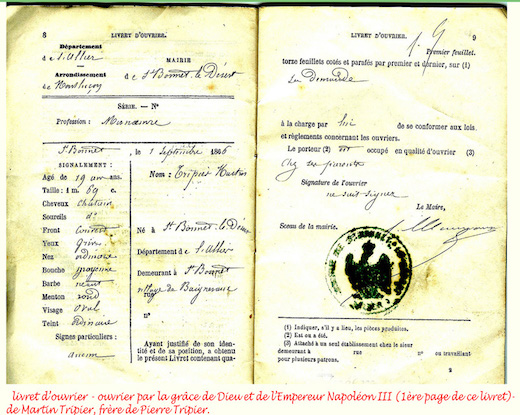 8 LIVRET D'OUVRIER.
Département
de l'Allier
MAIRIE
Arrondissement
de Montluçon
de St Bonnet-le-Désert
SÉRIE. — N°
Profession : Manœuvre
St Bonnet, le 1 Septembre 1866
SIGNALEMENT :
Agé de 19 ans
Nom : Tripier Martin
Taille : 1 m. 69 c.
Cheveux châtain
Sourcils do
Front couvert
Né à St Bonnet-le-Désert
Yeux gris
Nez ordinaire
Département de l'Allier
Bouche moyenne
Demeurant à St Bonnet
Barbe néant
village de
rue
Menton rond
Visage oval
n°
Teint ordinaire
Signes particuliers :
aucun
Ayant justifié de son iden-
tité et de sa position, a obtenu
le présent Livret contenant qua-
LIVRET D'OUVRIER. 9
Premier feuillet.
torze feuillets cotés et parafés par premier et dernier, sur (1)
sa demande
à la charge par lui de se conformer aux lois
et règlements concernant les ouvriers.
Le porteur (2) est occupé en qualité d'ouvrier (3)
chez ses parents
Signature de l'ouvrier
ne sait signer
Le Maire,
Sceau de la mairie.
(1) Indiquer, s'il y a lieu, les pièces produites.
(2) Est ou a été.
(3) Attaché à un seul établissement chez le sieur
demeurant à rue n° ou travaillant
pour plusieurs patrons.
livret d'ouvrier - ouvrier par la grâce de Dieu et de l'Empereur Napoléon III (1ère page de ce livret)-
de Martin Tripier, frère de Pierre Tripier.